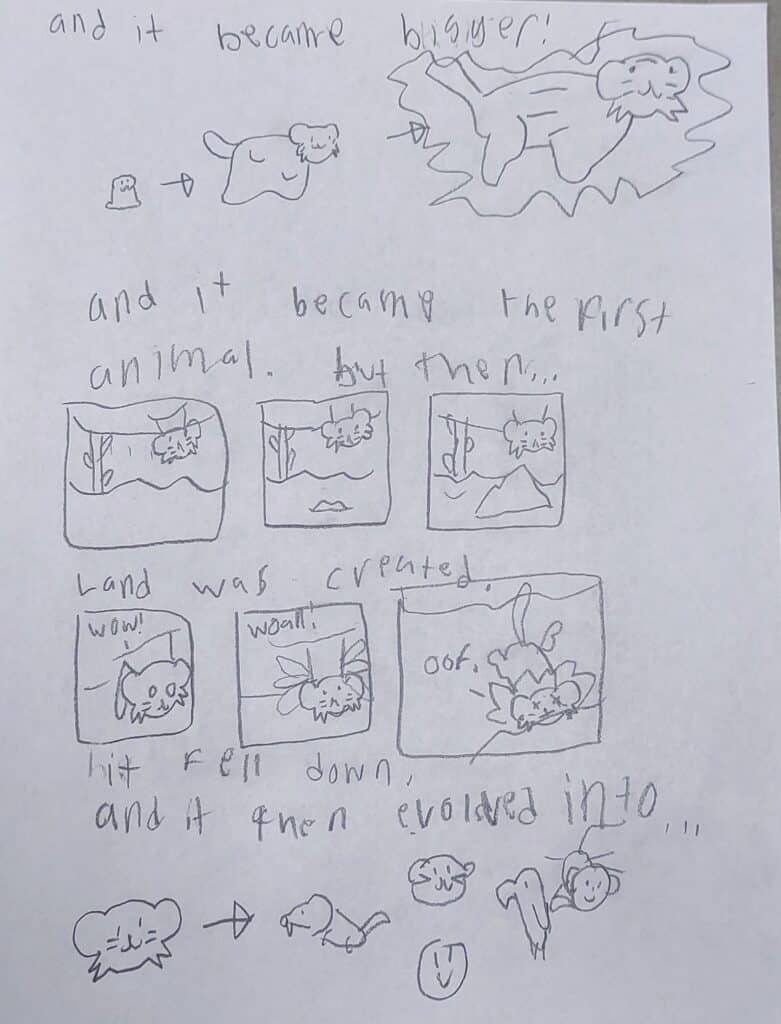 and it became bigger!
and it became the first
animal. but then...
Land was created.
wow!
woah!
oof.
it fell down,
and it then evolved into...